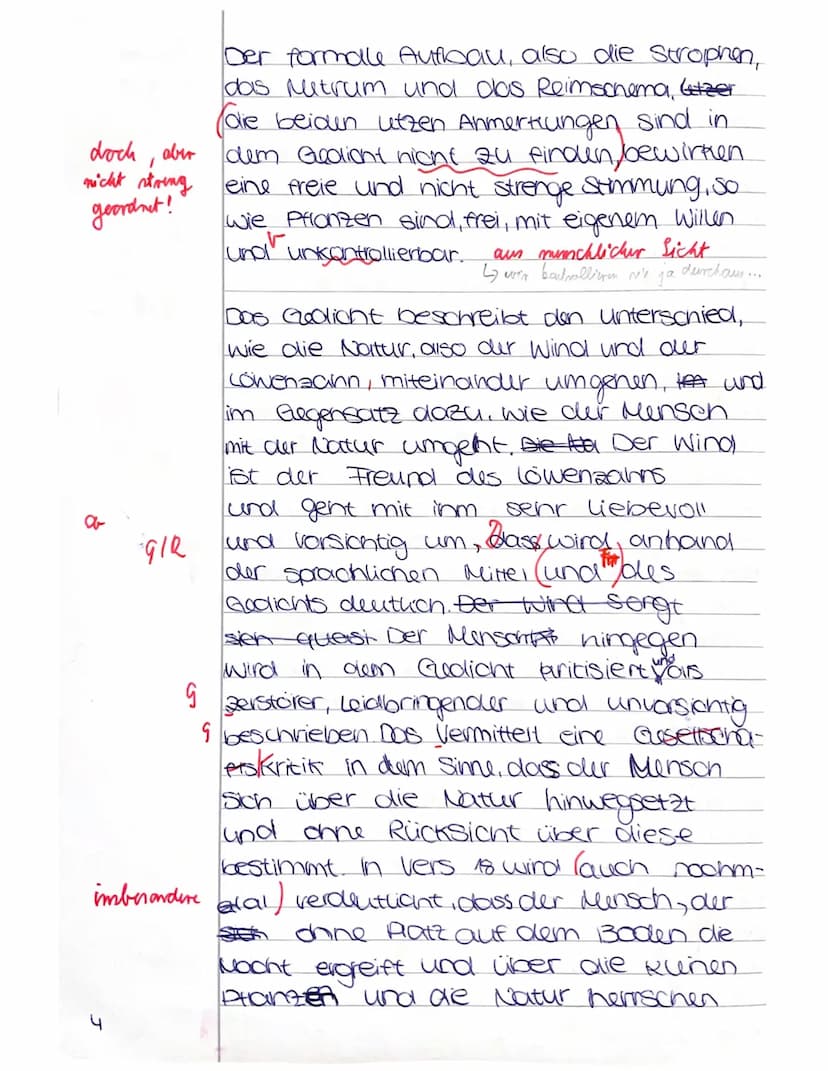 Der formale Aufbau, also die Strophen,
das Metrum und das Reimschema, letzer
(die beiden letzen Anmerkungen sind in
doch, aber
nicht streng
geordnet!
dem Gedicht nicht zu finden,) bewirken
eine freie und nicht strenge Stimmung, so
wie Pflanzen sind, frei, mit eigenem Willen
und unkontrollierbar. aus menschlicher Sicht
↳ wir kontrollieren sie ja durchaus...
Das Gedicht beschreibt den Unterschied,
wie die Natur, also der Wind und der
Löwenzahn, miteinander umgehen, und
im Gegensatz dazu, wie der Mensch
mit der Natur umgeht. Der Wind
ist der Freund des Löwenzahns
und geht mit ihm sehr liebevoll
G/R
und vorsichtig um, Dass wird, anhand
der sprachlichen Mittel (und For) des
Gedichts deutlich. Der Wind sorgt
sich quasi Der Mensch hingegen
wird in dem Gedicht kritisiert und als
G
zerstörer, Leidbringender und unvorsichtig
G
beschrieben. Das Vermittelt eine Gesellscha-
fts Kritik in dem Sinne, dass der Mensch
sich über die Natur hinwegsetzt
und ohne Rücksicht über diese
bestimmt. In Vers 18 wird (auch nochm-
insbesondere
al) verdeutlicht, dass der Mensch, der
sich ohne Platz auf dem Boden die
Macht ergreift und über die kleinen
Pflanzen und die Natur herrschen
4